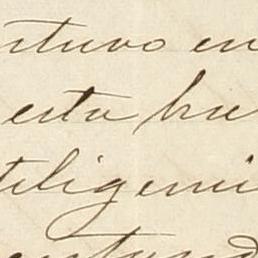 stuvo en
esta bue
teligenci